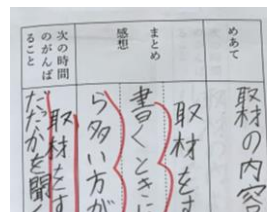 めあて
取材の内容
まとめ
取材をす
書くときに
感想
ら多い方が
次の時間
のがんば
ること
取材をす
だったかを聞く